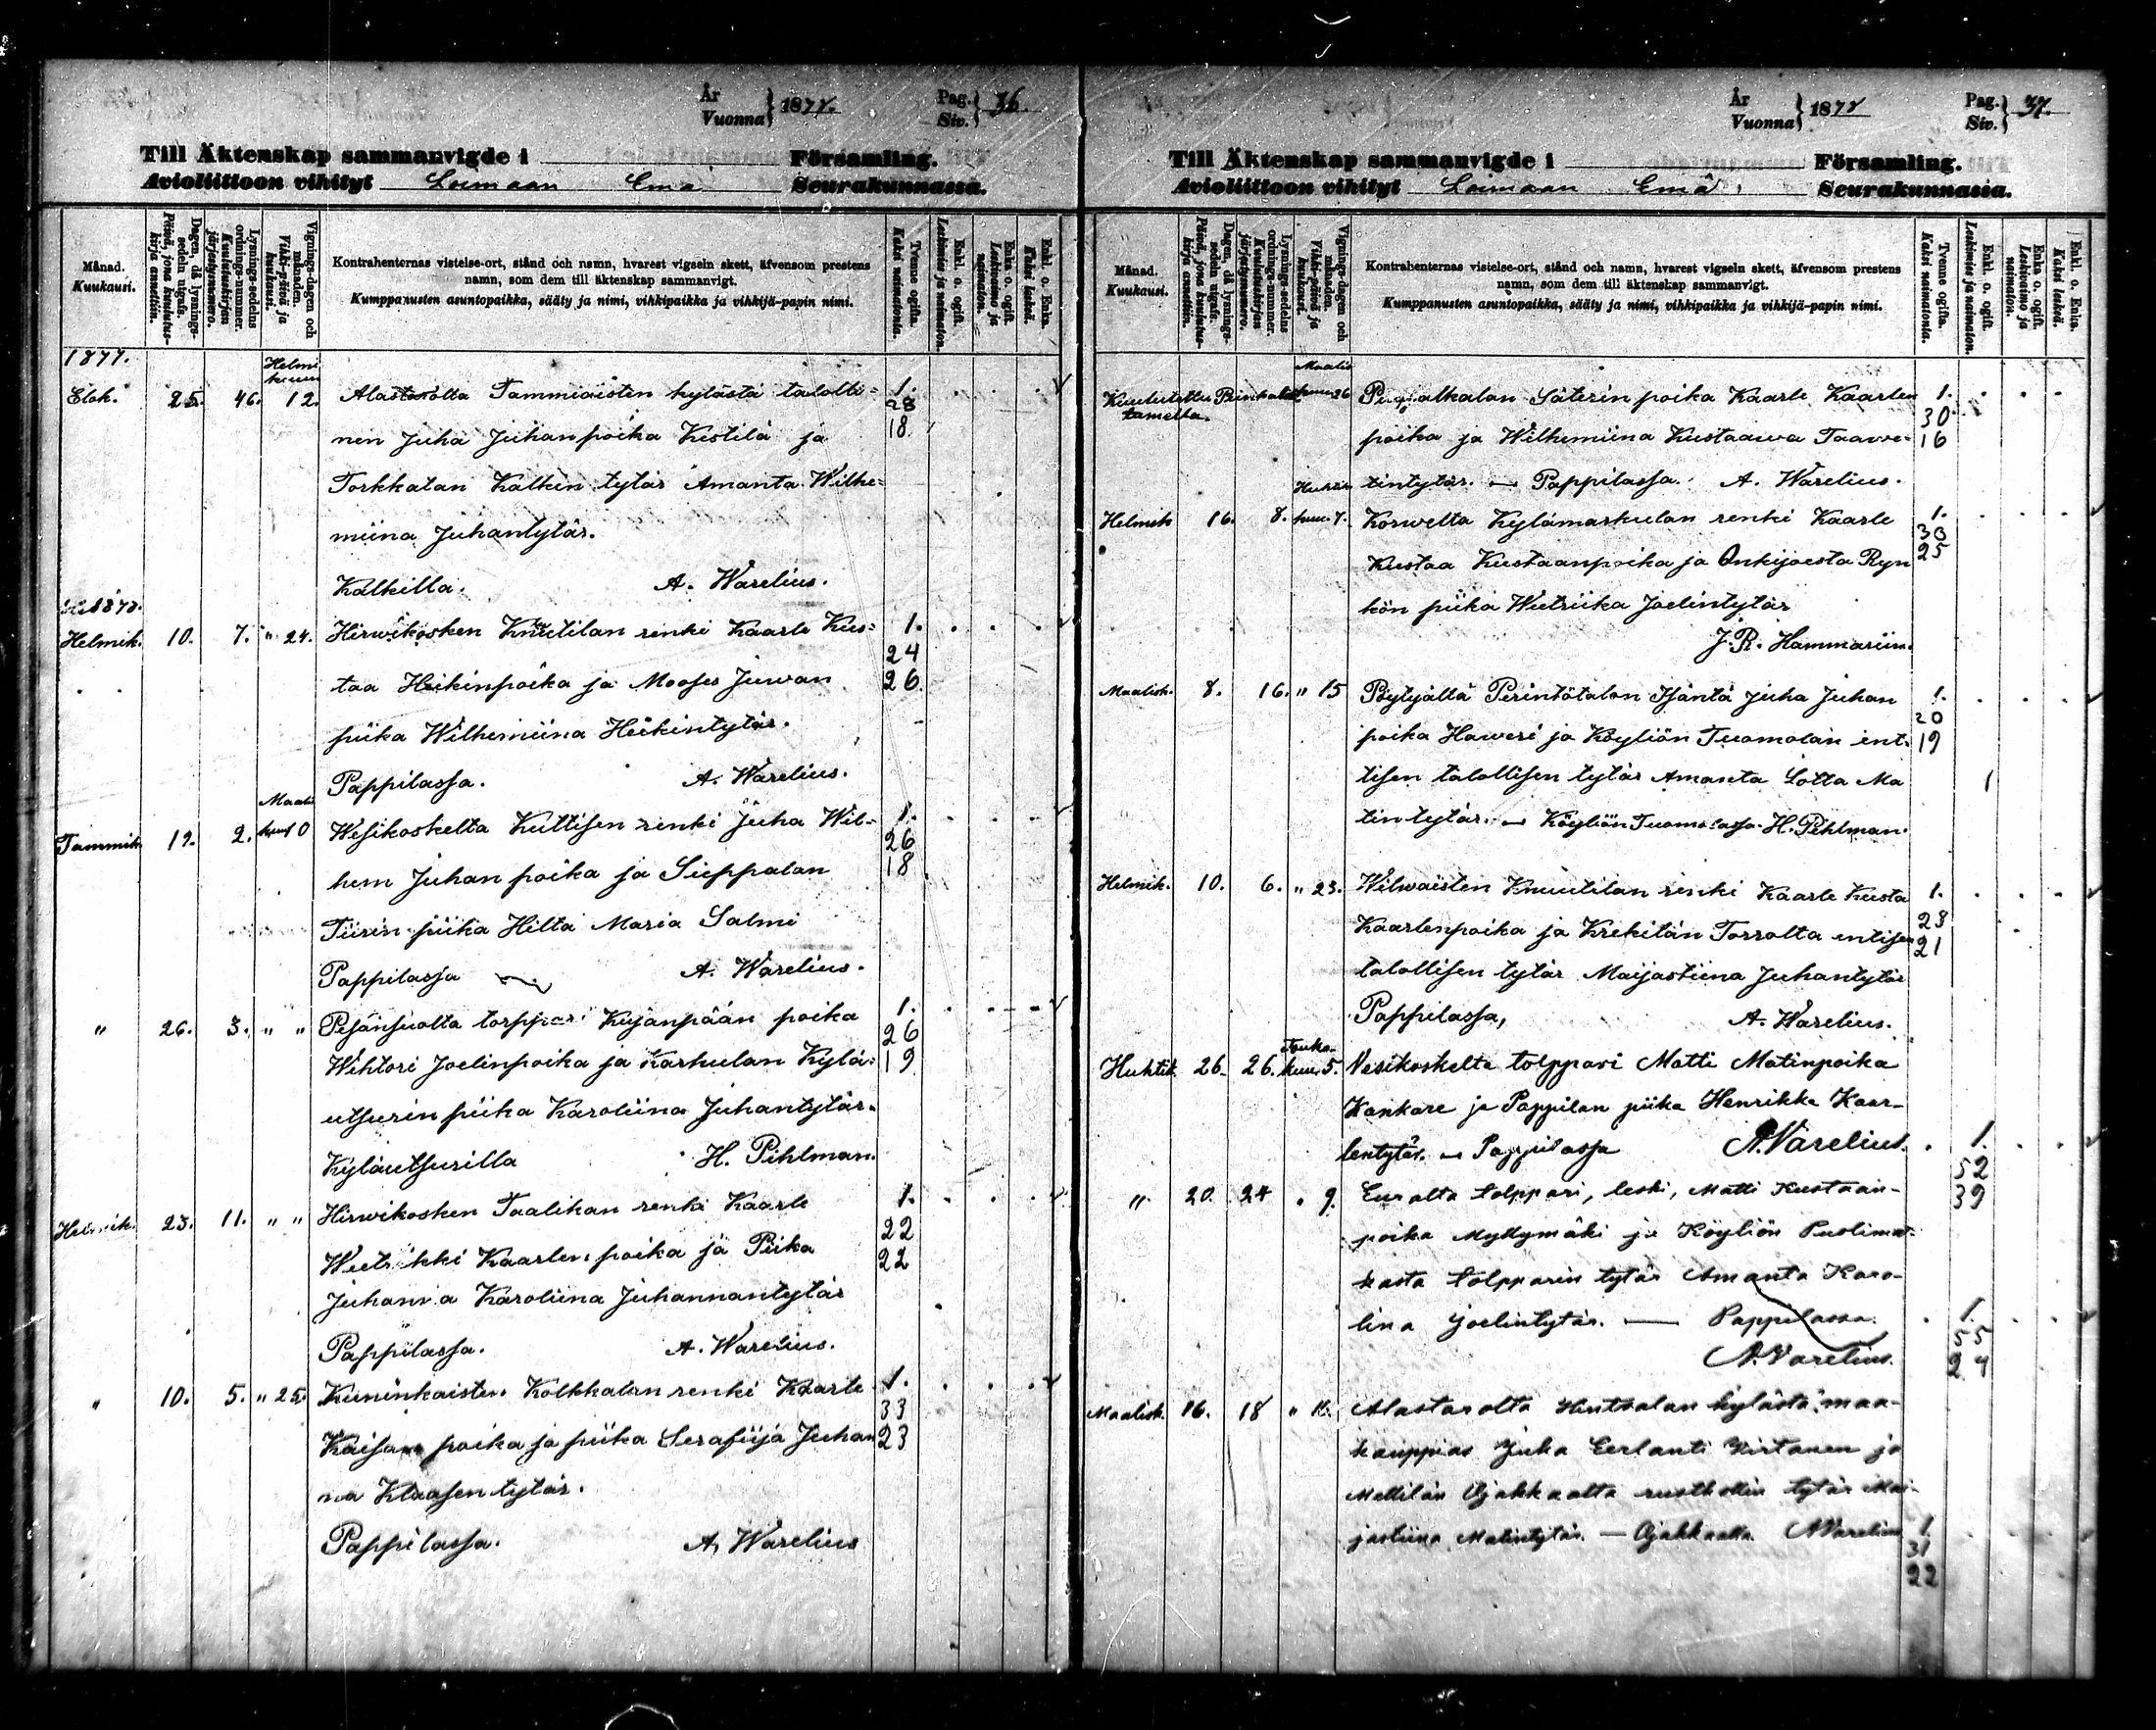 År
Vuonna } 1878. Pag.
Siv. } 36.
Till Äktenskap sammanvigde i Församling.
Avioliittoon vihityt Loimaan Emä Seurakunnassa.
Månad.
Kuukausi.
Dagen, då lysnings-sedeln utgafs.
Päivä, jona kuulutus-kirja annettiin.
Lysnings-sedelns ordnings-nummer.
Kuulutuskirjan järjestysnumero.
Vignings-dagen och månaden.
Vihki-päivä ja kuukausi.
Kontrahenternas vistelse-ort, stånd och namn, hvarest vigseln skett, äfvensom prestens
namn, som dem till äktenskap sammanvigt.
Kumppanusten asuntopaikka, sääty ja nimi, vihkipaikka ja vihkijä-papin nimi.
Tvenne ogifta.
Kaksi naimatonta.
Enkl. o. ogift.
Leskimies ja naimaton.
Enka o. ogift.
Leskivaimo ja naimaton.
Enkl. o. Enka.
Kaksi leskeä.
1877.
Helmi
kuun
Elok. 25. 46. 12. Alastarolta Tammiaisten kylästä talolli- 1.
28
nen Juha Juhanpoika Kestilä ja 18
Torkkalan Kalkin tytär Amanta Wilhe-
miina Juhantytär.
Kalkilla. A. Warelius.
1878.
Helmik. 10. 7. " 24. Hirwikosken Knuutilan renki Kaarle Kus- 1.
24
taa Heikinpoika ja Mooses Juwan 26
piika Wilhemiina Heikintytär.
Pappilassa. A. Warelius.
Maalis
Tammik. 19. 2. kuu 10 Wesikoskelta Kuttisen renki Juha Wil- 1.
26
hem Juhanpoika ja Sieppalan 18
Tiirin piika Hilta Maria Salmi
Pappilassa A. Warelius.
" 26. 3. " " Pesänsuolta torppari Kujanpään poika 1.
26
Wihtori Joelinpoika ja Karhulan Kylä- 19
utsurin piika Karoliina Juhantytär.
Kyläutsurilla H. Pihlman.
Helmik. 23. 11. " " Hirwikosken Taalikan renki Kaarle 1.
22
Wietrikki Kaarlenpoika ja Piika 22
Juhanna Karoliina Juhannantytär
Pappilassa. A. Warelius.
" 10. 5. " 25. Kuninkaisten Kolkkalan renki Kaarle 1.
33
Kaisan poika ja piika Serafiija Juhan 23
na Klaasentytär.
Pappilassa. A. Warelius
År
Vuonna } 1878 Pag.
Siv. } 37.
Till Äktenskap sammanvigde i Församling.
Avioliittoon vihityt Loimaan Emä Seurakunnassa.
Månad.
Kuukausi.
Dagen, då lysnings-sedeln utgafs.
Päivä, jona kuulutus-kirja annettiin.
Lysnings-sedelns ordnings-nummer.
Kuulutuskirjan järjestysnumero.
Vignings-dagen och månaden.
Vihki-päivä ja kuukausi.
Kontrahenternas vistelse-ort, stånd och namn, hvarest vigseln skett, äfvensom prestens
namn, som dem till äktenskap sammanvigt.
Kumppanusten asuntopaikka, sääty ja nimi, vihkipaikka ja vihkijä-papin nimi.
Tvenne ogifta.
Kaksi naimatonta.
Enkl. o. ogift.
Leskimies ja naimaton.
Enka o. ogift.
Leskivaimo ja naimaton.
Enkl. o. Enka.
Kaksi leskeä.
Maalis
Kuulutettu kuun 26 Säterin poika Kaarle Kaarlen 1.
30
poika ja Wilhemiina Kustaawa Taawe- 16
tintytär. — Pappilassa. A. Warelius.
Huhti
Helmik 16. 8. kuu. 7. Korwelta Kylämarkulan renki Kaarle 1.
30
Kustaa Kustaanpoika ja Onkijoesta Ryn 25
kön piika Wietriika Joelintytär
J. R. Hammariin.
Maalisk. 8. 16. " 15 Pöytyältä Perintötalon Isäntä Juha Juhan 1.
20
poika Haweri ja Köyliön Tuomolan ent. 19
tisen talollisen tytär Amanta Lotta Ma
tintytär. — Köyliön Tuomolassa H. Pihlman.
Helmik. 10. 6. " 23. Wilwaisten Knuutilan renki Kaarle Kusta 1.
23
Kaarlenpoika ja Krekilän Torrolta entisen 21
talollisen tytär Maijastiina Juhantytär
Pappilassa, A. Warelius.
Touko
Huhtik 26. 26. kuu. 5. Vesikoskelta tolppari Matti Matinpoika
Kankare ja Pappilan piika Henrikka Kaar-
lentytär. — Pappilassa A. Varelius. 1.
52
39
" 20. 24 " 9. Euralta tolppari, leski, Matti Kustaan-
poika Myllymäki ja Köyliön Puolimat-
kasta tolpparin tytär Amanta Karo-
lina Joelintytär. — Pappilassa. 1.
55
A. Varelius. 24
Maalisk. 16. 18 " 16. Alastarolta kylästä maa-
kauppias Juha Eerlanti Virtanen ja
Mellilän Ajakkaalta rusthollin tytär Mai-
jastiina Matintytär. — Ajakkaalla A. Varelius 1.
31
22